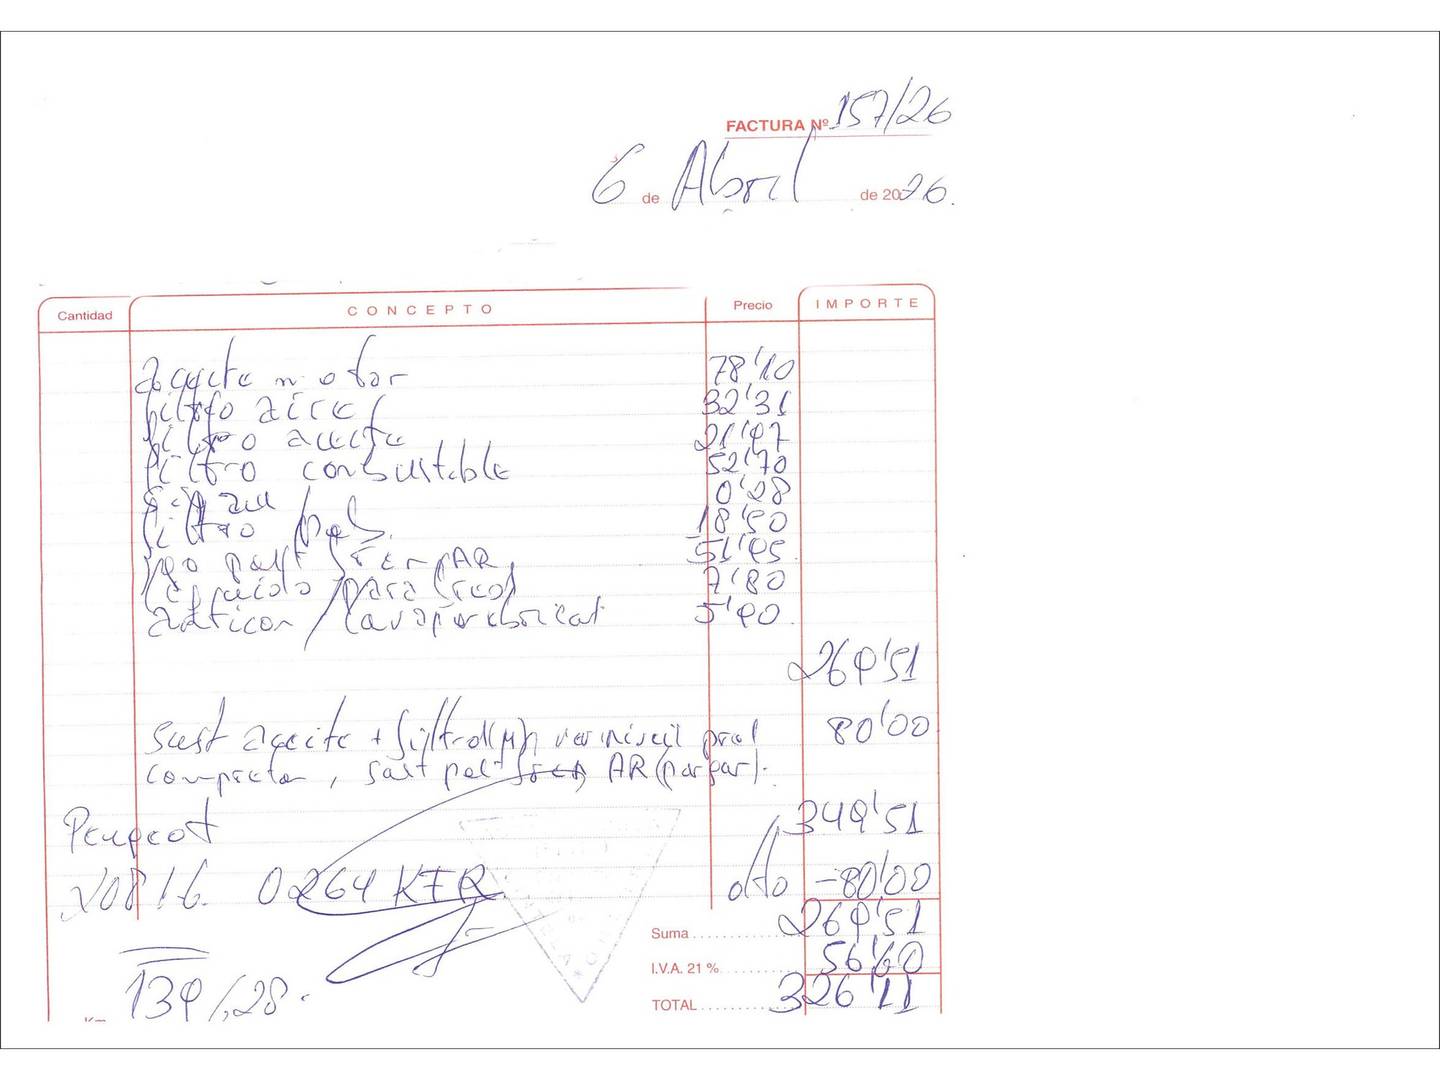 FACTURA Nº 157/26
6 de Abril de 2026.
Cantidad CONCEPTO Precio IMPORTE
aceite motor 78'10
filtro aire 32'31
filtro aceite 21'97
filtro combustible 52'70
0'28
filtro hab. 18'50
jgo past fren AR 51'95
7'80
anticon / 5'90
269'51
sust aceite + filtro ver nivel gral 80'00
completo, sust past fren AR (par par).
349'51
Peugeot
dto -80'00
208 1.6. 0264 KFR
Suma 269'51
I.V.A. 21 % 56'60
TOTAL 326'11
139/,28.